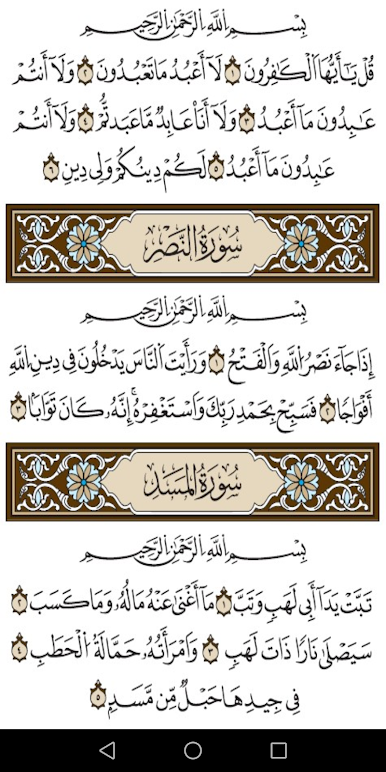 بِسْمِ اللَّهِ الرَّحْمَٰنِ الرَّحِيمِ
قُلْ يَٰٓأَيُّهَا الْكَٰفِرُونَ ١ لَآ أَعْبُدُ مَا تَعْبُدُونَ ٢ وَلَآ أَنتُمْ
عَٰبِدُونَ مَآ أَعْبُدُ ٣ وَلَآ أَنَا۠ عَابِدٌ مَّا عَبَدتُّمْ ٤ وَلَآ أَنتُمْ
عَٰبِدُونَ مَآ أَعْبُدُ ٥ لَكُمْ دِينُكُمْ وَلِىَ دِينِ ٦
سُورَةُ النَّصْرِ
بِسْمِ اللَّهِ الرَّحْمَٰنِ الرَّحِيمِ
إِذَا جَآءَ نَصْرُ اللَّهِ وَالْفَتْحُ ١ وَرَأَيْتَ النَّاسَ يَدْخُلُونَ فِى دِينِ اللَّهِ
أَفْوَاجًا ٢ فَسَبِّحْ بِحَمْدِ رَبِّكَ وَاسْتَغْفِرْهُ ۚ إِنَّهُۥ كَانَ تَوَّابًۢا ٣
سُورَةُ المَسَدِ
بِسْمِ اللَّهِ الرَّحْمَٰنِ الرَّحِيمِ
تَبَّتْ يَدَآ أَبِى لَهَبٍ وَتَبَّ ١ مَآ أَغْنَىٰ عَنْهُ مَالُهُۥ وَمَا كَسَبَ ٢
سَيَصْلَىٰ نَارًا ذَاتَ لَهَبٍ ٣ وَامْرَأَتُهُۥ حَمَّالَةَ الْحَطَبِ ٤
فِى جِيدِهَا حَبْلٌ مِّن مَّسَدٍۭ ٥